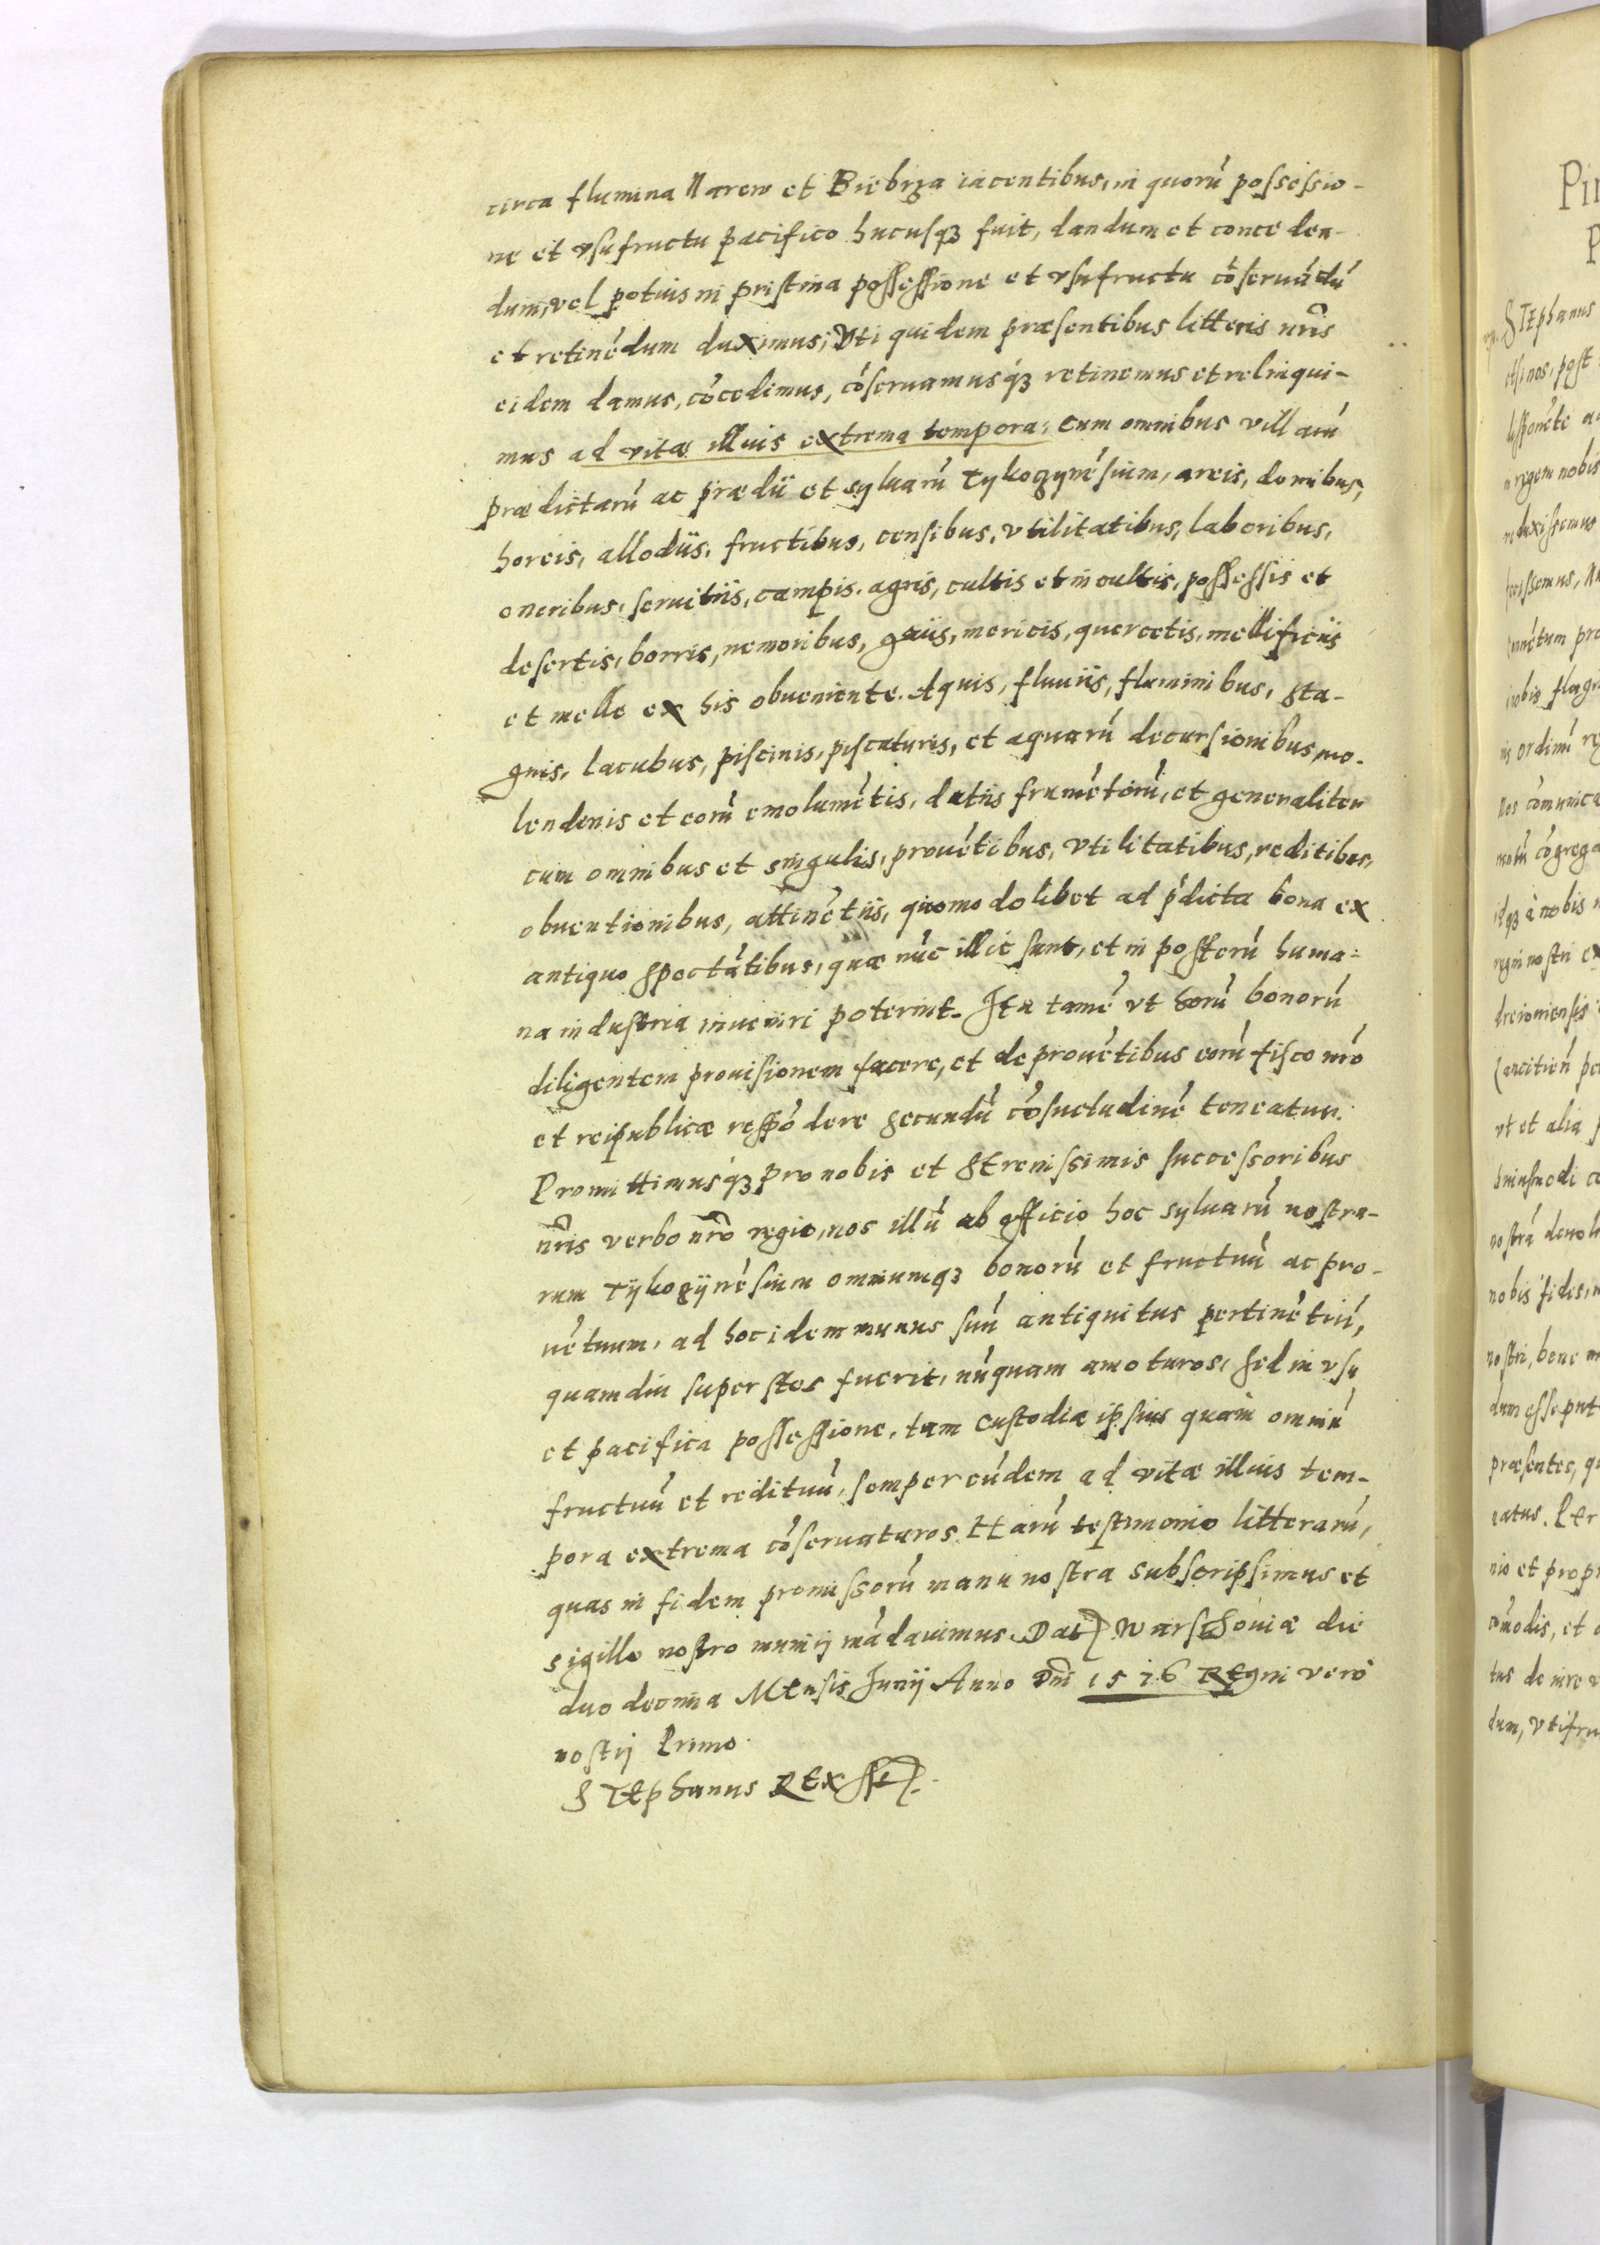 circa flumina Narew et Biebrza iacentibus, in quorū possessio-
ne et vsufructu pacifico hucusq3 fuit, dandum et conceden-
dum, vel potius in pristina possessione et vsufructu cōseruādū
et retinēdum duximus; Vti quidem præsentibus litteris nr̃is
eidem damus, cōcedimus, cōseruamusq3 retinemus et relinqui-
mus ad vitæ illius extrema tempora: cum omnibus villarū
prædictarū ac prædii et syluarū Tykozynēsium, areis, domibus,
horeis, allodiis, fructibus, censibus, vtilitatibus, laboribus,
oneribus, seruitiis, campis, agris, cultis et incultis, possessis et
desertis, borris, nemoribus, gaiis, mericis, quercetis, mellificiis
et melle ex his obueniente. Aquis, fluuiis, fluminibus, sta-
gnis, lacubus, piscinis, piscaturis, et aquarū decursionibus, mo-
lendenis et eorū emolumētis, datiis frumētorū, et generaliter
cum omnibus et singulis, prouētibus, vtilitatibus, reditibus,
obuentionibus, attinētiis, quomodolibet ad p̄dicta bona ex
antiquo spectātibus, quæ nūc illic sunt, et in posterū huma-
na industria inueniri poterint. Ita tamē vt horū bonorū
diligentem prouisionem facere, et de prouētibus eorū fisco nr̃o
et reipublicæ respōdere secundū cōsuetudinē teneatur.
Promittimusq3 pro nobis et Strenissimis successoribus
nr̃is verbo nr̃o regio, nos illū ab officio hoc syluarū nostra-
rum Tykozijnēsium omniumq3 bonorū et fructuū ac pro-
uētuum, ad hoc idem munus suū antiquitus pertinētiū,
quamdiu superstes fuerit, nūquam amoturos, sed in vsu
et pacifica possessione, tam custodiæ ipsius quam omniū
fructuū et redituū, semper eūdem ad vitæ illius tem-
pora extrema cōseruaturos. Harū testimonio litterarū,
quas in fidem promissorū manu nostra subscripsimus et
sigillo nostro munij mādauimus. Dat) Warschouiæ die
duodecima Mensis Junij Anno Dn̄i 1576 Regni vero
nostij Primo.
Stephanus Rex sst).
Pir
P
Stephanus
etsi nos, post
n regem nobis
nos cōmunica
idq3 à nobis
regni nostri ex
vt et alia
huiusmodi co
nobis fides,
nostri, bene
dum esse put
præsentes, qu
eatus. Per
nio et propr
cōmodis, et
dum, vtifru